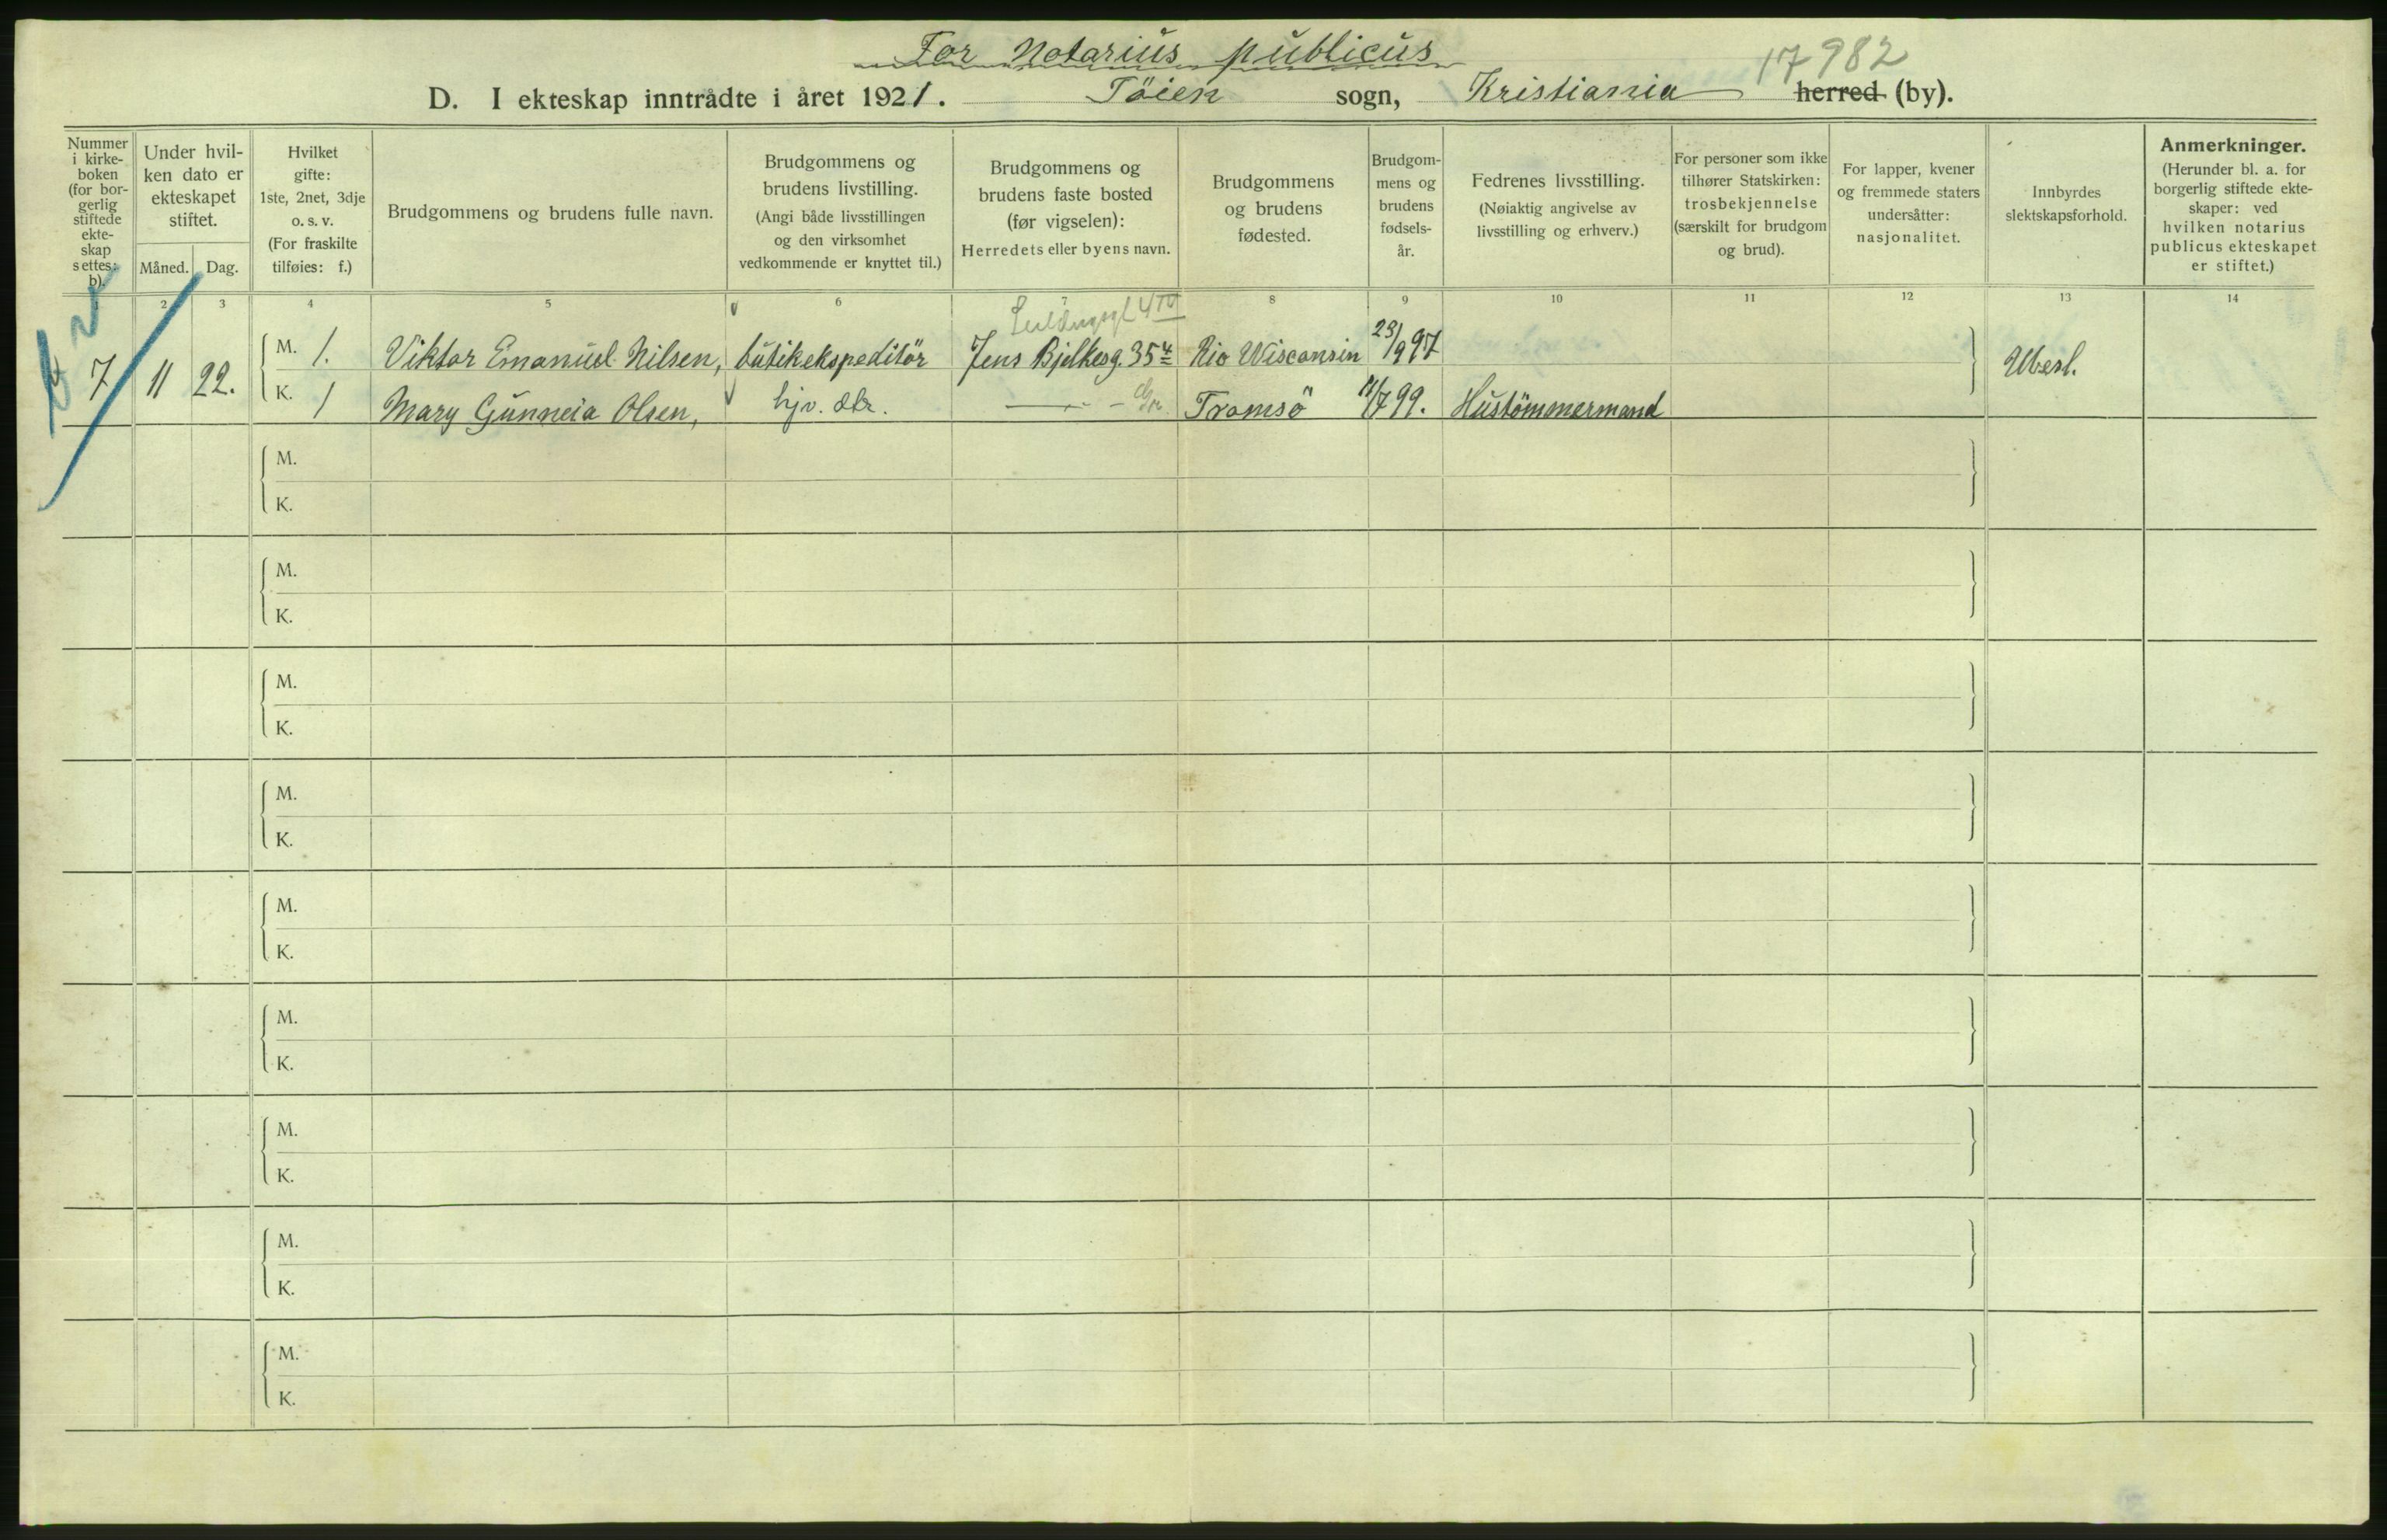 For Notarius publicus
17982
D. I ekteskap inntrådte i året 1921. Töien sogn, Kristiania herred (by).
Nummer i kirke-boken (for bor-gerlig stiftede ekte-skap settes: b).
Under hvil-ken dato er ekteskapet stiftet.
Måned. Dag.
Hvilket gifte: 1ste, 2net, 3dje o. s. v. (For fraskilte tilføies: f.)
Brudgommens og brudens fulle navn.
Brudgommens og brudens livstilling. (Angi både livsstillingen og den virksomhet vedkommende er knyttet til.)
Brudgommens og brudens faste bosted (før vigselen): Herredets eller byens navn.
Brudgommens og brudens fødested.
Brudgom-mens og brudens fødsels-år.
Fedrenes livsstilling. (Nøiaktig angivelse av livsstilling og erhverv.)
For personer som ikke tilhører Statskirken: trosbekjennelse (særskilt for brudgom og brud).
For lapper, kvener og fremmede staters undersåtter: nasjonalitet.
Innbyrdes slektskapsforhold.
Anmerkninger. (Herunder bl. a. for borgerlig stiftede ekte-skaper: ved hvilken notarius publicus ekteskapet er stiftet.)
1 2 3 4 5 6 7 8 9 10 11 12 13 14
7 11 22. M. 1. Viktor Emanuel Nilsen, butikekspeditör Jens Bjelkesg. 35 4 Rio Wisconsin 23/9 97 Ubesl.
K. 1 Mary Gunneia Olsen, hjv. dtr. — - Tromsö 11/7 99. Hustömmermand
M.
K.
M.
K.
M.
K.
M.
K.
M.
K.
M.
K.
M.
K.
M.
K.
M.
K.